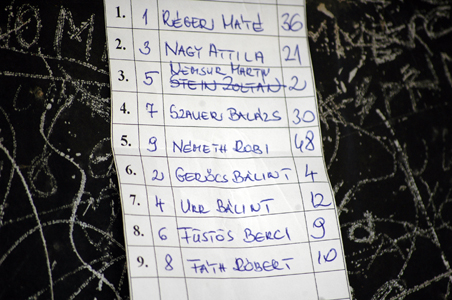 1. 1 RÉGERI MÁTÉ 36
2. 3 NAGY ATTILA 21
NEMSUR MARTIN
3. 5 STEIN ZOLTÁN 2
4. 7 SZAUERI BALÁZS 30
5. 9 NÉMETH ROBI 48
6. 2 GERŐCS BÁLINT 4
7. 4 URR BÁLINT 12
8. 6 FÜSTÖS BERCI 9
9. 8 FÁTH RÓBERT 10